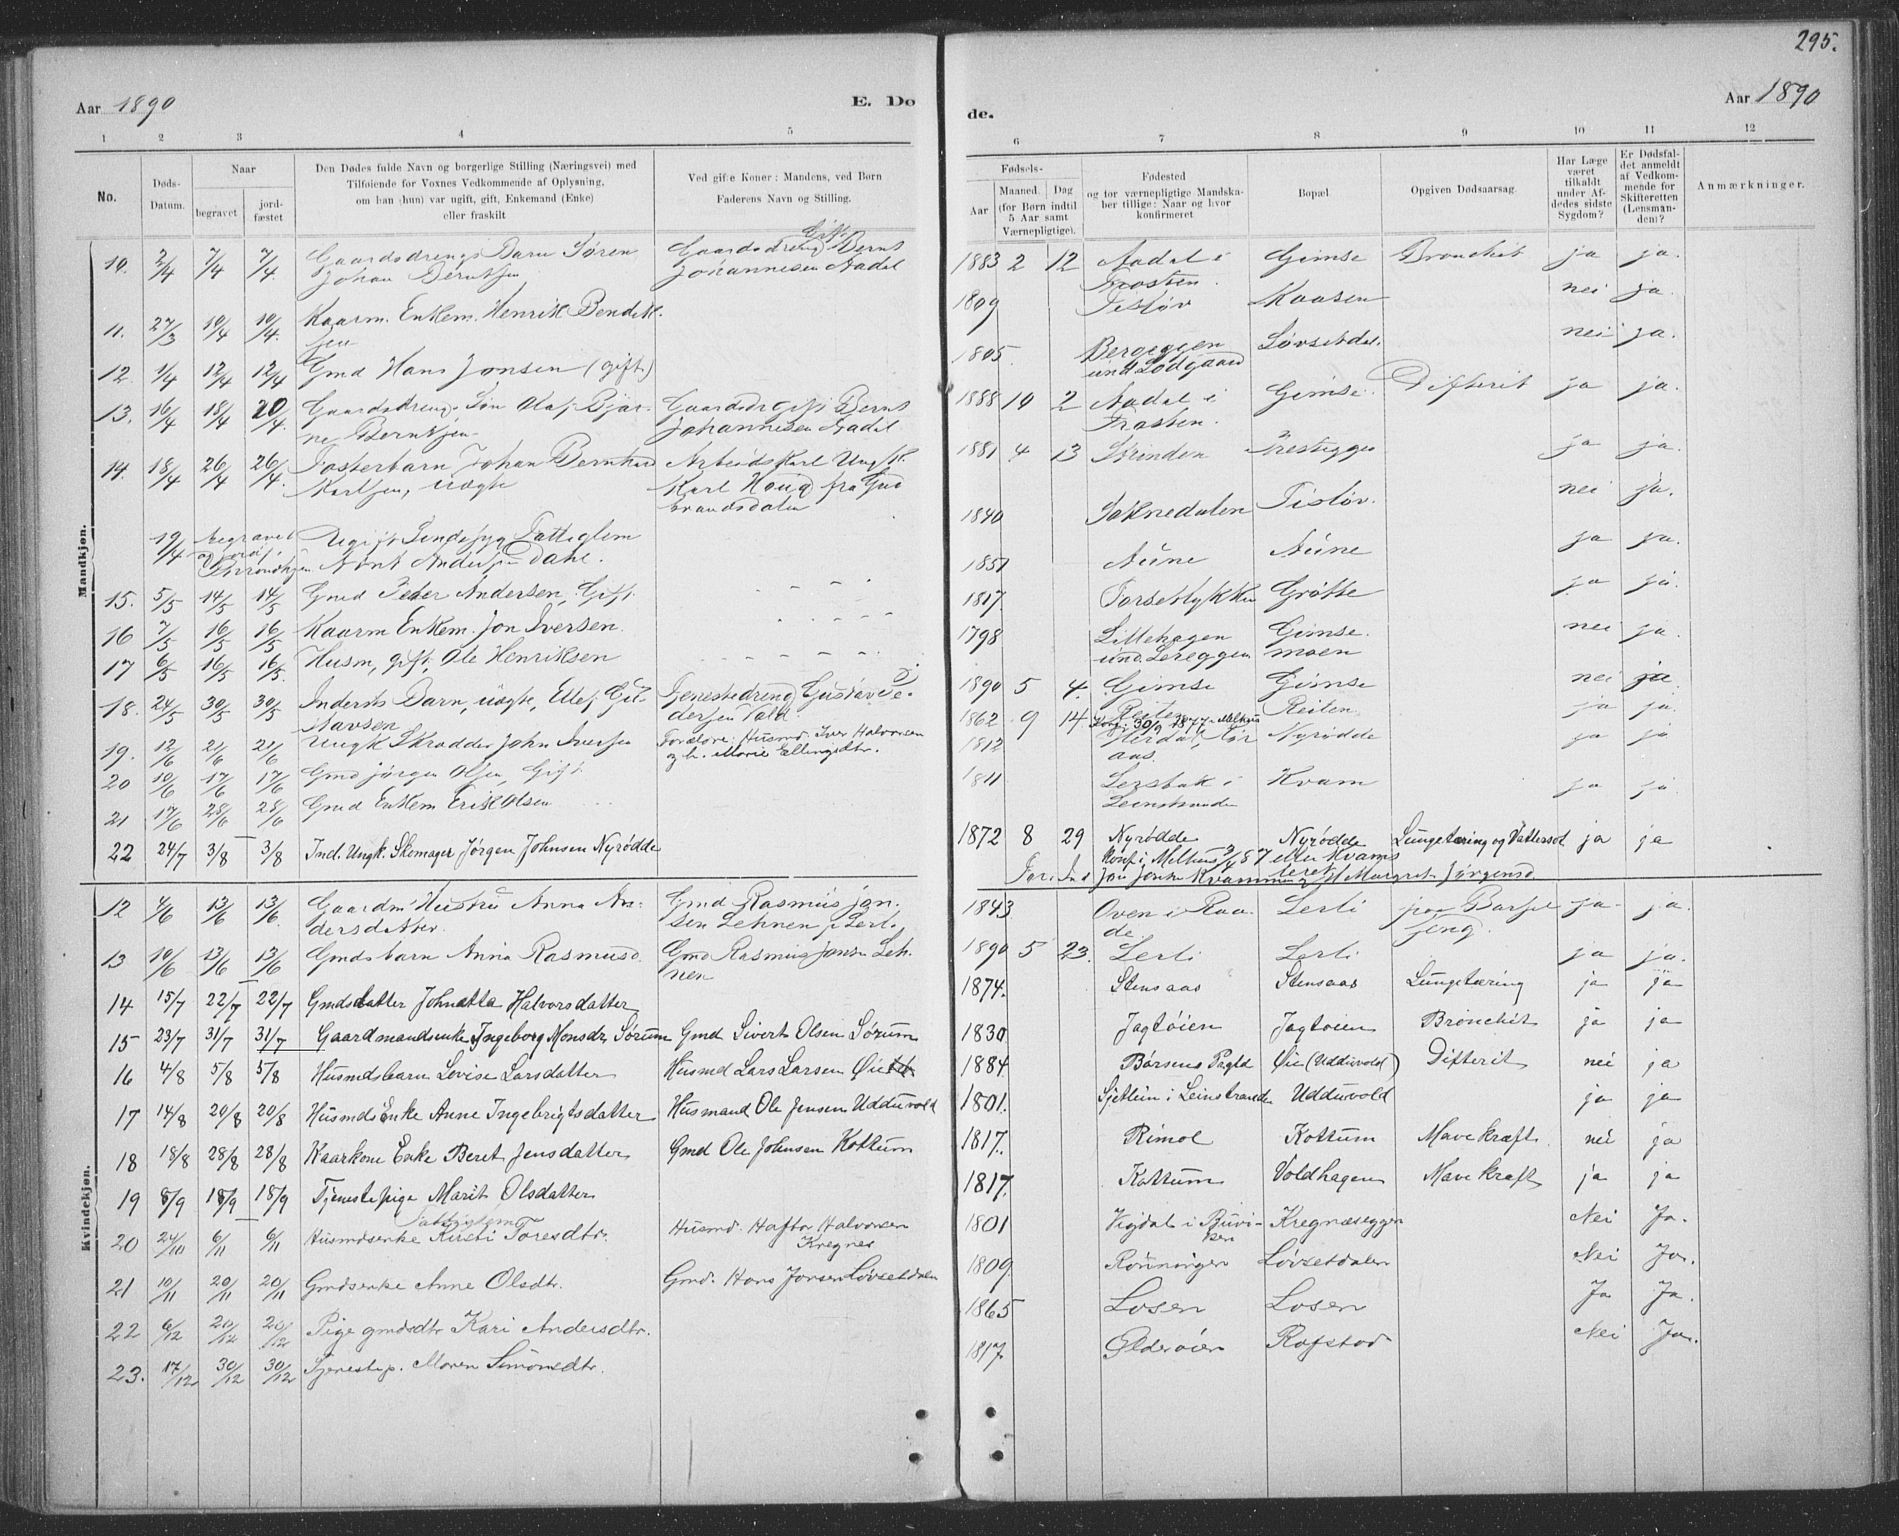 295.
Aar 1890 E. Dø
de. Aar 1890
1 2 3 4 5
6 7 8 9 10 11 12
No.
Døds-Datum.
Naar
begravet
jord-fæstet
Den Dødes fulde Navn og borgerlige Stilling (Næringsvei) med
Tilføiende for Voxnes Vedkommende af Oplysning,
om han (hun) var ugift, gift, Enkemand (Enke)
eller fraskilt
Ved gifte Koner: Mandens, ved Børn
Faderens Navn og Stilling.
Fødsels-
Aar
Maaned. Dag
(for Børn indtil
5 Aar samt
Værnepligtige).
Fødested
og for værnepligtige Mandska-
ber tillige: Naar og hvor
konfirmeret
Bopæl
Opgiven Dødsaarsag.
Har Læge
været
tilkaldt
under Af-
dødes sidste
Sygdom?
Er Dødsfal-
det anmeldt
af Vedkom-
mende for
Skifteretten
(Lensman-
den)?
Anmærkninger.
Mandkjøn.
10. 2/4 7/4 7/4. Gaardsdrengs Barn Søren Gaardsdreng Gift Bernt 1883 2 12 Aadal i Gimse Bronchit ja ja.
Johan Berntsen Johannesen Aadal Frosten.
11. 27/3 10/4 10/4. Kaarm. Enkem. Henrik Bendik- 1809 Tisløv Kaasen nei ja.
sen
12. 1/4 12/4 12/4 Gmd Hans Jonsen (gift) 1805. Bereggen Løvsetdal. nei ja.
und. Lodgaard
13. 16/4 18/4 20/4. Gaardsdreng. Søn Olaf Bjar- Gaardsdr gift Bernt 1888 10 2 Aadal i Gimse. Difterit ja ja.
ne Berntsen Johannesen Aadal Frosten.
14. 18/4 26/4 26/4. Fosterbarn, Johan Bernhard Arbeidskarl Ungk. 1881 4 13 Strinden Prestegges ja ja.
Karlsen, uægte Karl Houg fra Gud
brandsdalen
19/4 begravet Ugift Sindssyg Fattiglem 1840 Soknedalen Tisløv. nei ja.
Arnt Andersen Dahl.
15. 5/5 14/5 14/5 Gmd Peder Andersen, Gift. 1851 Nüne Nüne ja ja.
16 7/5 16/5 16/5 Kaarm Enkem. Jon Iversen. 1817. Forsetlykken Grøtte ja ja
17 6/5 16/5 16/5. Husm, gift, Ole Henriksen 1798 Lillehagen Gimse. nei ja.
und. Lereggen moen
18. 24/5 30/5 30/5 Inderst Barn, uægte, Ellef Gu- Tjenestedreng Gustav Pe- 1890 5 4. Gimse Gimse nei ja
stavsen dersen Vold.
19. 12/6 21/6 21/6 Ungk Skrædder John Iversen Forældre: Husmd Iver Halvorsen 1862 9 14 Reiten Reiten. ja ja.
og h. Marie Ellingsdtr. Konf. 30/9 1877 Melhus
20 10/6 17/6 17/6 Gmd Jørgen Olsen, Gift. 1812 Nyrødde ja ja
aas.
21 17/6 28/6 28/6 Gmd Enkem Erik Olsen 1811 Lersbak i Kvam ja ja.
Leinstranden
22 24/7 3/8 3/8 Ind. Ungk. Skomager Jørgen Johnsen Nyrødde 1872 8 29 Nyrødde Nyrødde Lungetæring og Vattersot ja ja
Konf i Melhus
For. Ind Jon Jonsen Kvammen og h Margret Jørgensd
Kvindekjøn.
12 4/6 13/6 13/6. Gaardm. Hustru Anna An- Gmd Rasmus Jon- 1843 Oven i Raa Lerli paa Barsel ja- ja.
dersdatter. sen Lehnen p Lerl. de. seng.
13 10/6 13/6 13/6 Gmds barn Anna Rasmusd. Gmd Rasmus Jonsen Leh- 1890 5 23. Lerli Lerli ja ja.
nen
14 15/7 22/7 22/7 Gmdsdatter Johnetta Halvorsdatter 1874. Stensaas Stensaas Lungetæring ja ja
15 23/7 31/7 31/7 Gaardmandsenke Ingeborg Monsdr Sørum Gmd Sivert Olsen Sørum 1830 Jagtøien Jagtøien Bronchit ja ja
16 4/8 5/8 5/8 Husmdsbarn Lovise Larsdatter Husmd Lars Larsen Øie 1884 Børsens Pgtld Øie (Udduvold) Difterit nei ja
17 14/8 20/8 20/8 Husmds Enke Anne Ingebrigtsdatter Husmand Ole Jensen Udduvold 1801. Sjetlein i Leinstranden Udduvold ja ja
18 18/8 28/8 28/8 Kaarkone Enke Beret Jensdatter Gmd Ole Johnsen Kottum 1817. Rimol Kottum Mavekræft nei ja
19 8/9 18/9 18/9 Tjenestepige Marit Olsdatter 1817. Kottum Voldhagen Mavekræft ja ja
Fattiglem
20 24/10 6/11 6/11 Husmdsenke Kirsti Toresdtr. Husmd. Haftor Halvorsen 1801 Vigdal i Buvi- Kregnæseggen Nei Ja.
Kregnes ken
21 10/11 20/11 20/11 Gmdsenke Anne Olsdtr. Gmd. Hans Jonsen Løvsetdalen 1809. Rønningen Løvsetdalen Nei Ja.
22 6/12 20/12 20/12 Pige gmdsdtr Kari Andersdtr. 1865 Losen Losen Ja Ja.
23. 17/12 30/12 30/12 Tjenestep. Maren Simonsdtr. 1817. Ølderøien Rofstad Nei Ja.